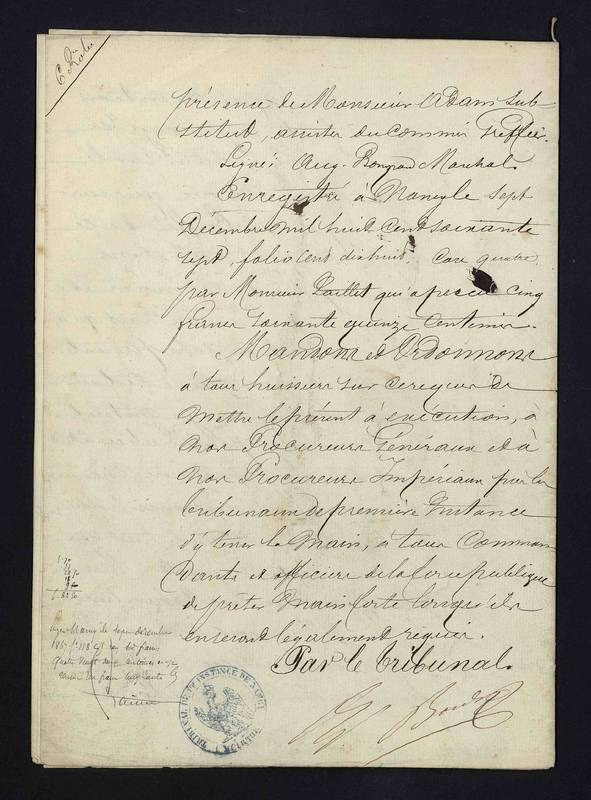 présence de Monsieur Adam Sub-
stitut, assistés du commis Greffier.
Signé: Aug. Marchal
Enregistré à Nancy le sept
Décembre mil huit cent soixante
sept, folio cent dix huit, Case quatre
par Monsieur qui a perçu cinq
francs soixante quinze centimes.
Mandons et Ordonnons
à tous huissiers sur ce requis de
mettre le présent à exécution, à
nos Procureurs Généraux et à
nos Procureurs Impériaux près les
tribunaux de première Instance
d'y tenir la Main, à tous Comman
dants et officiers de la force publique
de prêter Main forte lorsqu'ils
en seront légalement requis.
Par le tribunal
TRIBUNAL DE 1RE INSTANCE DE NANCY
(MEURTHE)